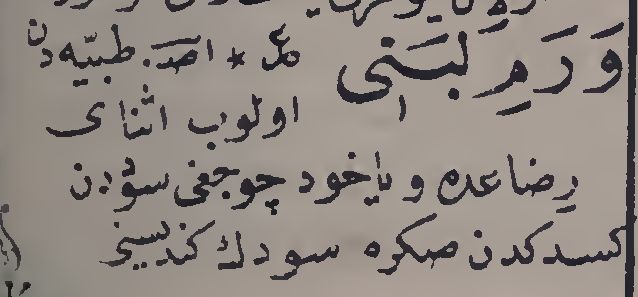 وَرَمِ لَبَنِی * اصـ. طبیّه دن
اولوب اثنای
رِضاعده و یاخود چوجغی سوددن
کسدکدن صکره سودك کندیسنی